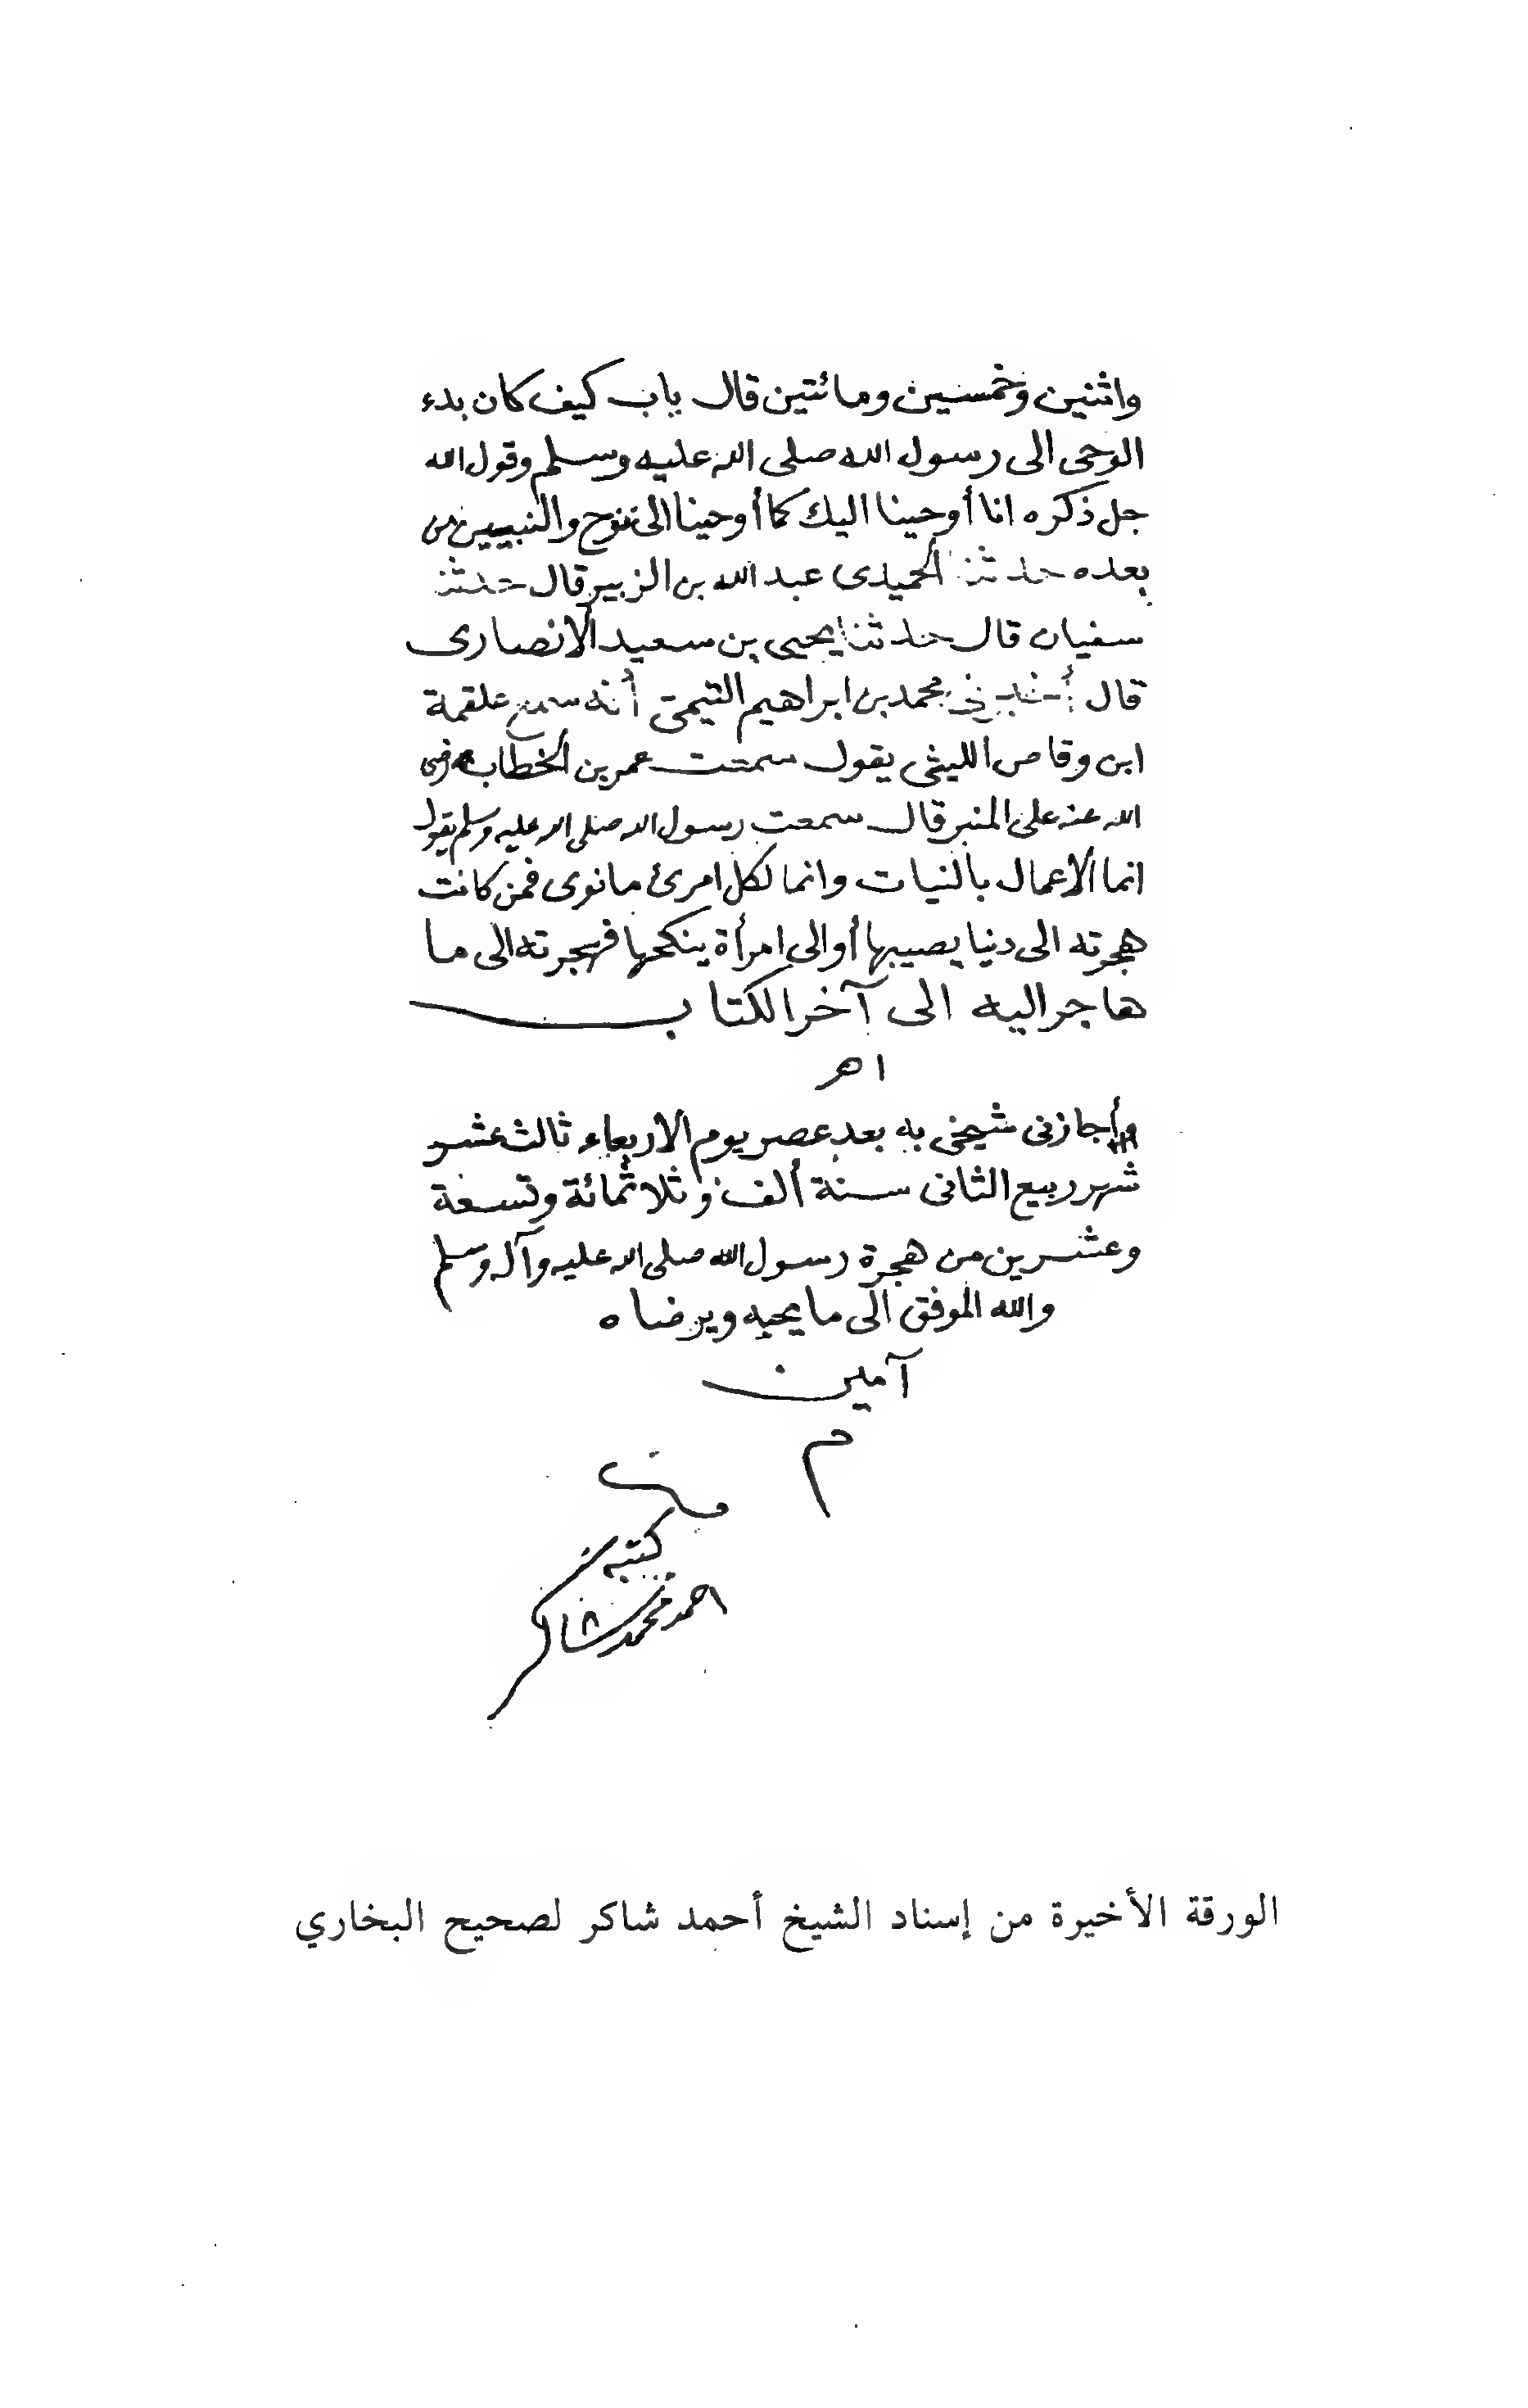 واثنين وخمسين ومائتين قال باب كيف كان بدء
الوحى الى رسول الله صلى الله عليه وسلم وقول الله
جل ذكره انا أوحينا اليك كما أوحينا الى نوح والنبيين من
بعده حدثنا الحميدى عبد الله بن الزبير قال حدثنا
سفيان قال حدثنا يحيى بن سعيد الانصارى
قال أخبرنى محمد بن ابراهيم التيمى أنه سمع علقمة
ابن وقاص الليثى يقول سمعت عمر بن الخطاب رضى
الله عنه على المنبر قال سمعت رسول الله صلى الله عليه وسلم يقول
انما الاعمال بالنيات وانما لكل امرئ ما نوى فمن كانت
هجرته الى دنيا يصيبها أو الى امرأة ينكحها فهجرته الى ما
هاجر اليه الى آخر الكتاب
اهـ
وأجازنى شيخى به بعد عصر يوم الاربعاء ثالث عشر
شهر ربيع الثانى سنة ألف وثلاثمائة وتسعة
وعشرين من هجرة رسول الله صلى الله عليه وآله وسلم
والله الموفق الى ما يحبه ويرضاه
آمين
م
كتبه
احمد محمد شاكر
الورقة الأخيرة من إسناد الشيخ أحمد شاكر لصحيح البخاري